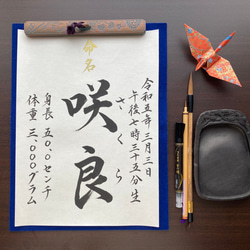 命名
令和五年三月三日
午後七時三十五分生
さくら
咲良
身長 五〇.〇センチ
体重 三、〇〇〇グラム